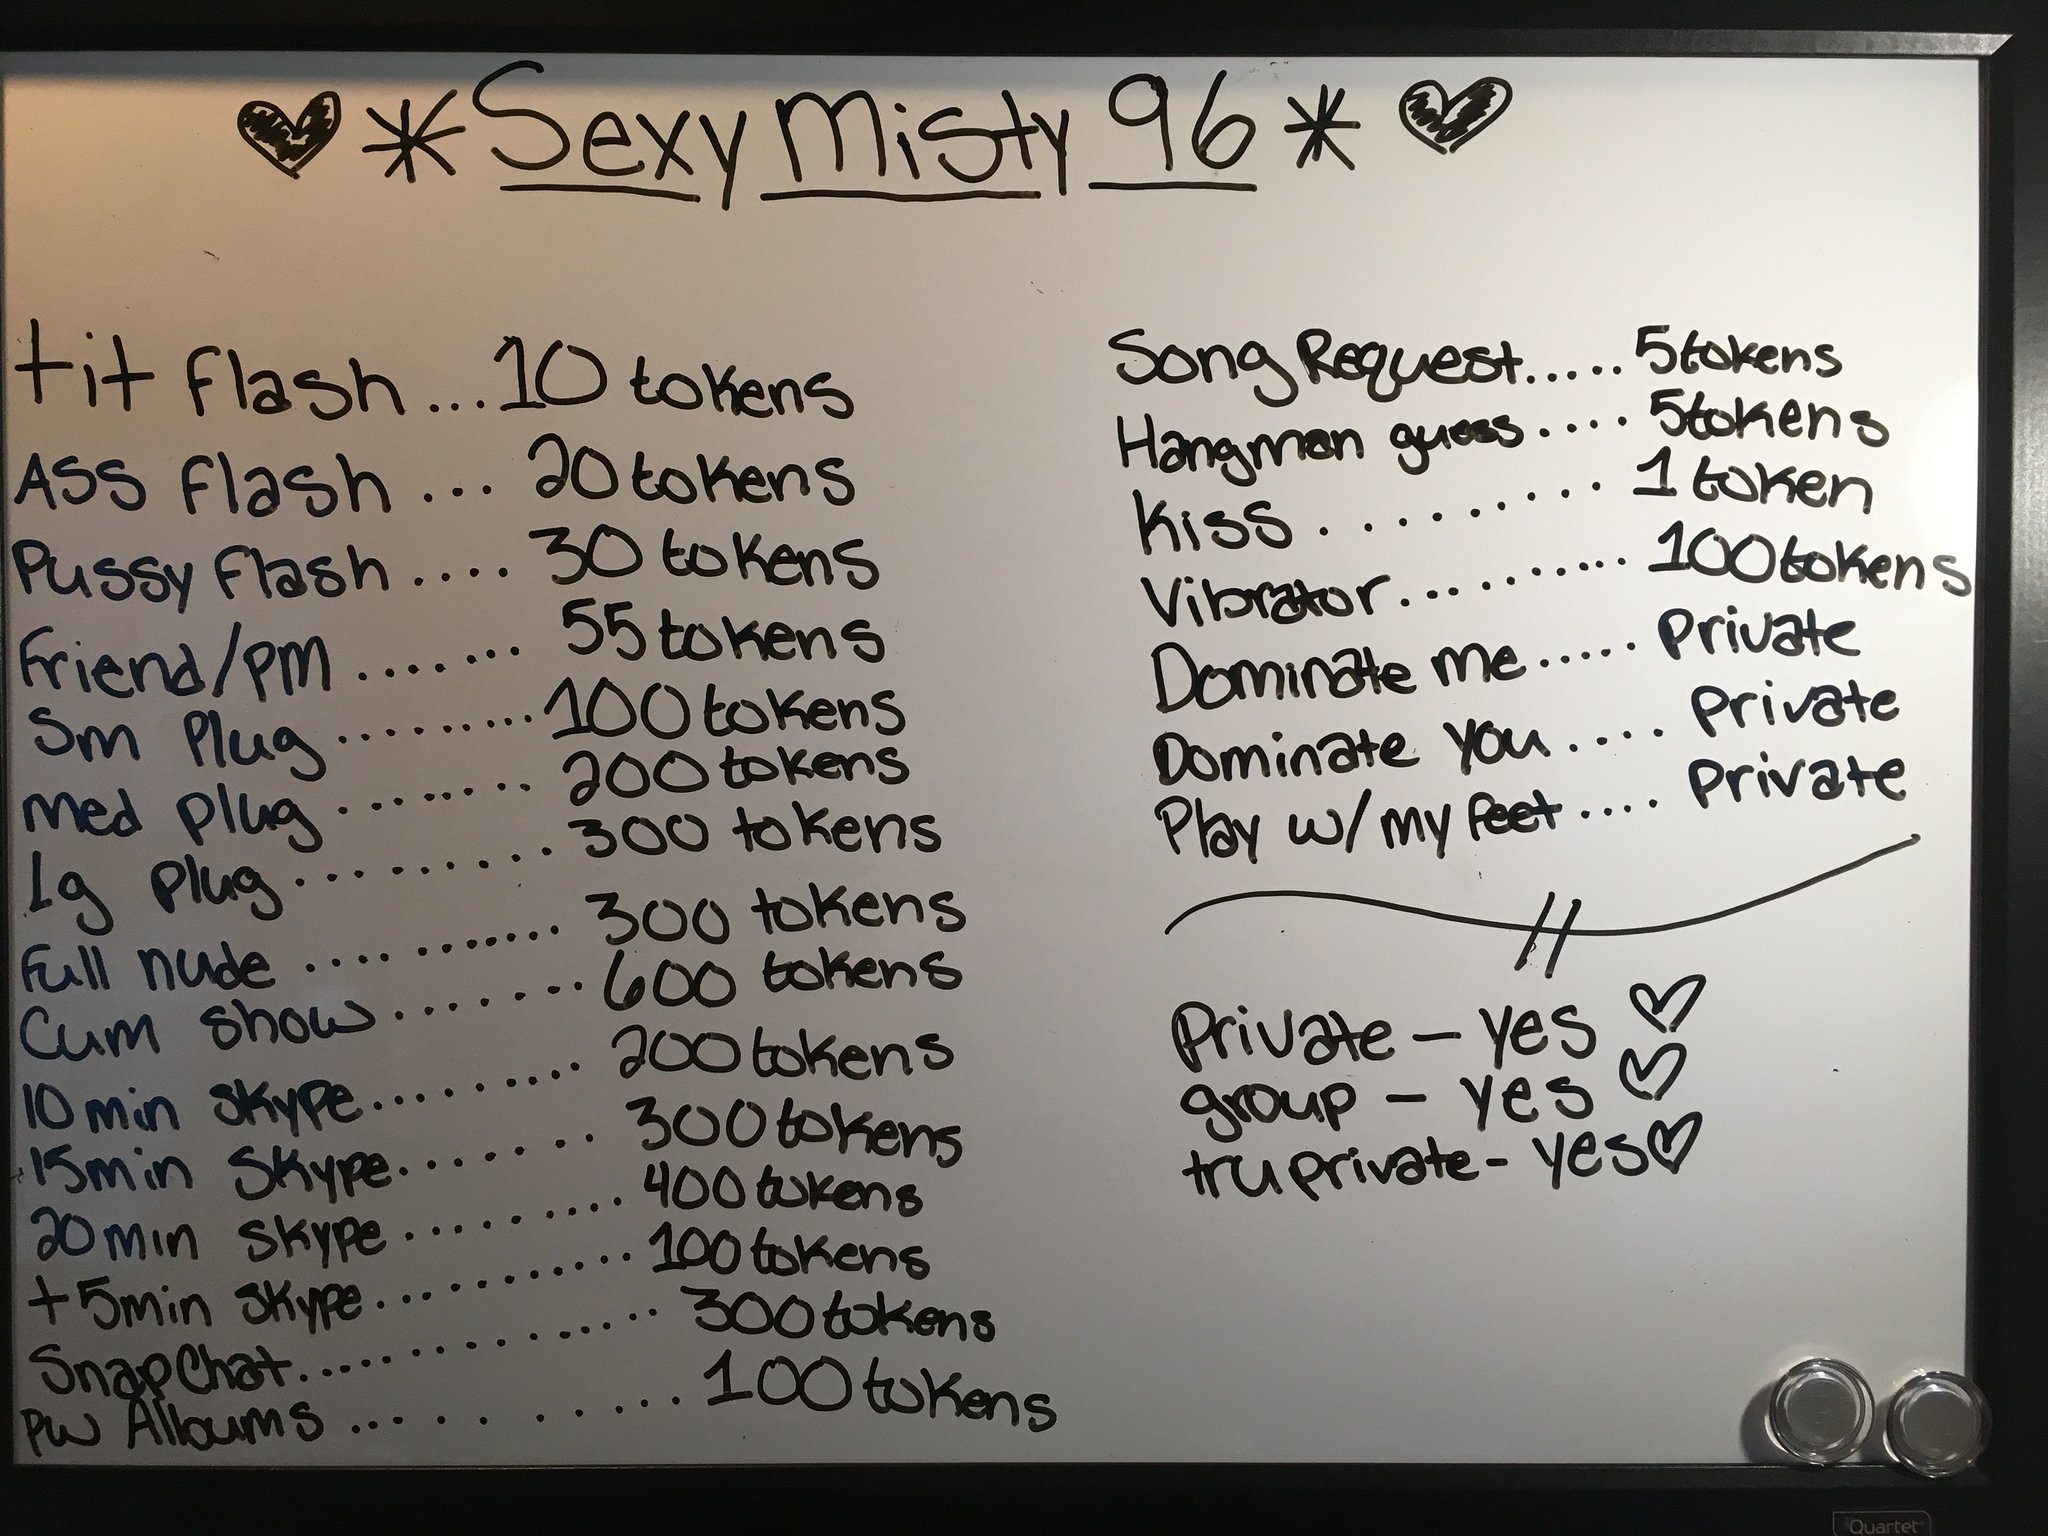 Sexy Misty 96
tit flash ... 10 tokens
Ass flash ... 20 tokens
Pussy flash .... 30 tokens
Friend/PM ....... 55 tokens
Sm Plug ......... 100 tokens
med plug ........ 200 tokens
lg plug ......... 300 tokens
Full nude ........... 300 tokens
Cum show ........ 600 tokens
10 min skype ......... 200 tokens
15 min skype ....... 300 tokens
20 min skype ......... 400 tokens
+5 min skype ........... 100 tokens
Snapchat ............... 300 tokens
PW Albums ......... 100 tokens
Song Request ..... 5 tokens
Hangman guess .... 5 tokens
Kiss ......... 1 token
Vibrator .......... 100 tokens
Dominate me ..... Private
Dominate you .... Private
Play w/ my feet .... Private
Private - yes
group - yes
tru private - yes
Quartet